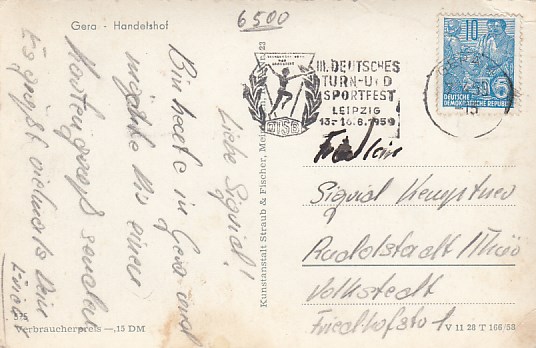 6500
Gera - Handelshof
III. DEUTSCHES
TURN- UND
SPORTFEST
LEIPZIG
13.-16.8.1959
DTSB
10
DEUTSCHE
DEMOKRATISCHE REPUBLIK
Liebe Sigrid!
Bin heute in Gera und
möchte Dir einen
Kartengruß senden
Es grüßt vielmals Dein
Fräulein
Sigrid
Rudolstadt /Thür
Volkstedt
Friedhofstr 1
Kunstanstalt Straub & Fischer, Mei
23
575
Verbraucherpreis -,15 DM
V 11 28 T 166/58